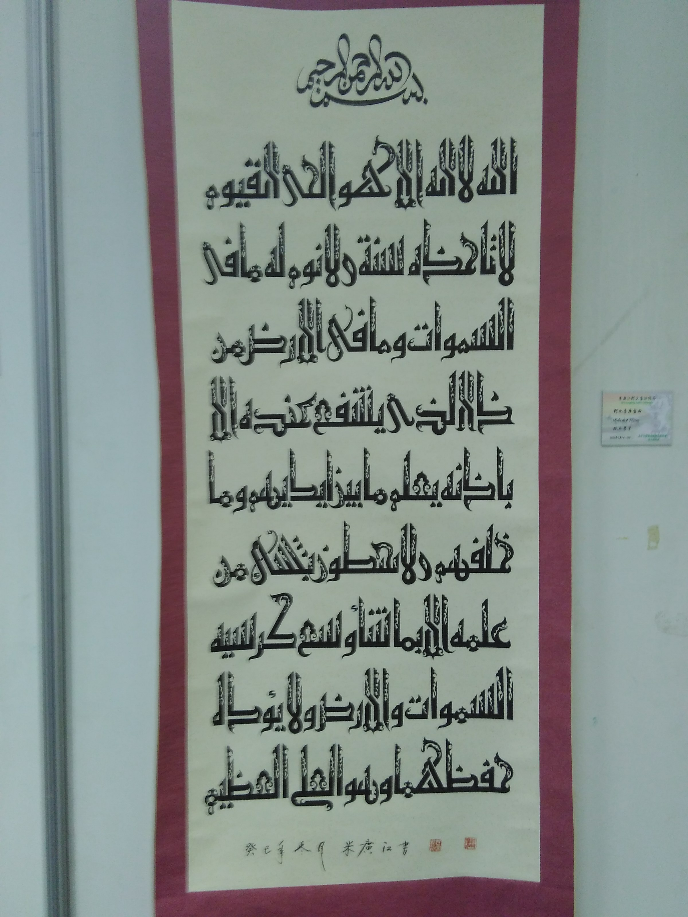 بسم الله الرحمن الرحيم
الله لا اله الا هو الحى القيوم
لا تاخذه سنة ولا نوم له ما فى
السموات وما فى الارض من
ذا الذى يشفع عنده الا
باذنه يعلم ما بين ايديهم وما
خلفهم ولا يحيطون بشى من
علمه الا بما شاء وسع كرسيه
السموات والارض ولا يؤده
حفظهما وهو العلى العظيم
癸巳年冬月 米廣江書